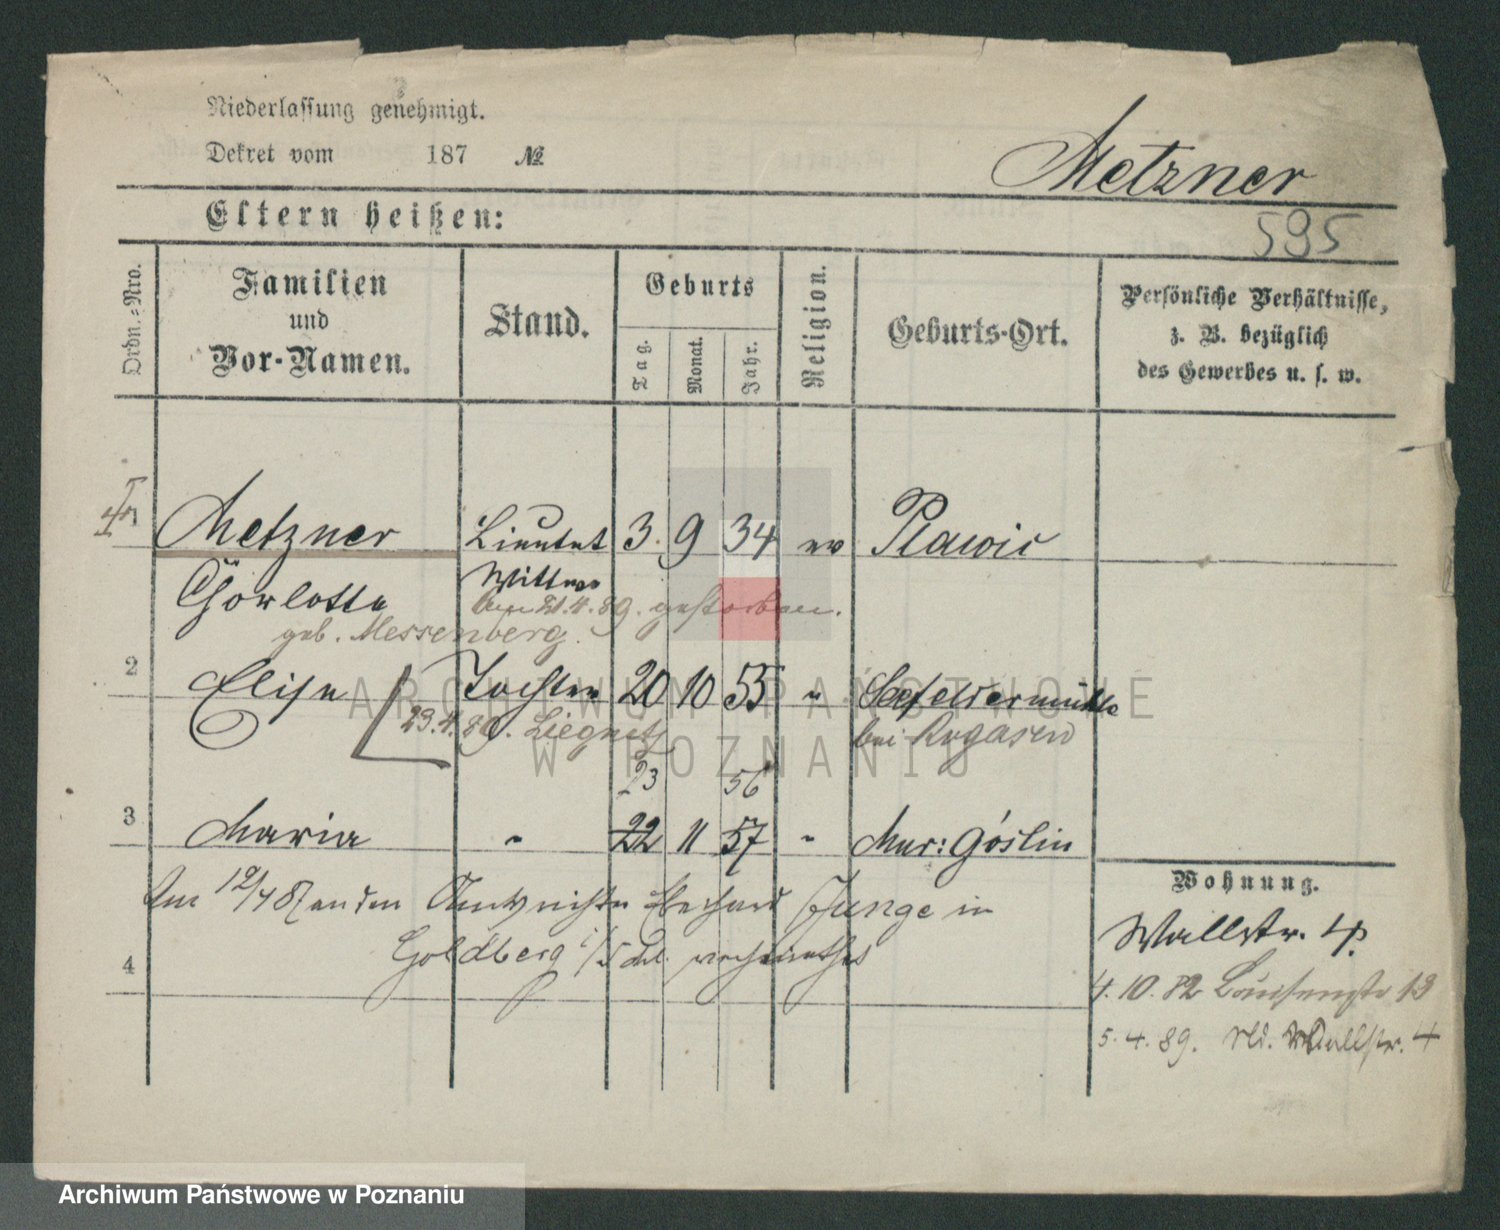 Niederlassung genehmigt.
Dekret vom 187 №
Metzner
595
Eltern heißen:
Ordn.-Nro.
Familien
und
Vor-Namen.
Stand.
Geburts
Tag.
Monat.
Jahr.
Religion.
Geburts-Ort.
Persönliche Verhältnisse,
z. B. bezüglich
des Gewerbes u. s. w.
Metzner Lieutnt 3. 9 34 ev Plawic
Wittwe
21.4.89. gestorben.
geb. Messenberg.
2 Elise Tochter 20 10 55 " Seefeldermühle
23.4.89. Liegnitz bei Rogasen
23 56
3 Maria " 22 11 57 " Mur: Goslin
Am 12/4 87 an den Amtsrichter Junge in
Goldberg i/Schl. verheirathet
4
Wohnung.
Wallstr. 4.
4.10.82 Louisenstr 13
5.4.89. Wallstr. 4
ARCHIWUM PAŃSTWOWE
W POZNANIU
Archiwum Państwowe w Poznaniu